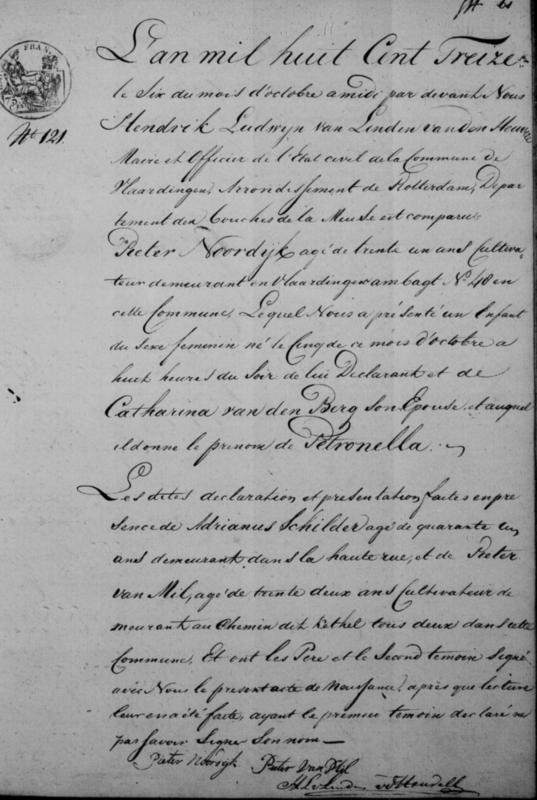 FRAN
N° 121.
L'an mil huit Cent Treize
le Six du mois d'octobre a midi par devant Nous
Hendrik Ludwyn van Linden van den Heuvell
Maire et Officier de l'Etat civel de la Commune de
Vlaardingen, Arrondissement de Rotterdam, Depar
tement des Bouches de la Meuse est comparu
Pieter Noordijk agé de trente un ans Cultiva-
teur demeurant en Vlaardingerambagt N° 48 en
cette Commune, Lequel Nous a présenté un Enfant
du Sexe feminin né le Cinq de ce mois d'octobre a
huit heures du Soir de lui Declarant et de
Catharina van den Berg son Epouse, et auquel
il donne le prenom de Petronella.
Les dites declaration et presentation faites en pre
sence de Adrianus Schilder agé de quarante un
ans demeurant dans la haute rue, et de Pieter
van Mil, agé de trente deux ans Cultivateur de
meurant au Chemin de Kethel tous deux dans cette
Commune, Et ont les Pere et le Second temoin Signé
avec Nous le present acte de Naissance, après que lecture
leur en a été faite, ayant le premier temoin declaré ne
pas savoir Signer Son nom
Pieter Noordyk Pieter van Myl
H L v Linden vd Heuvell